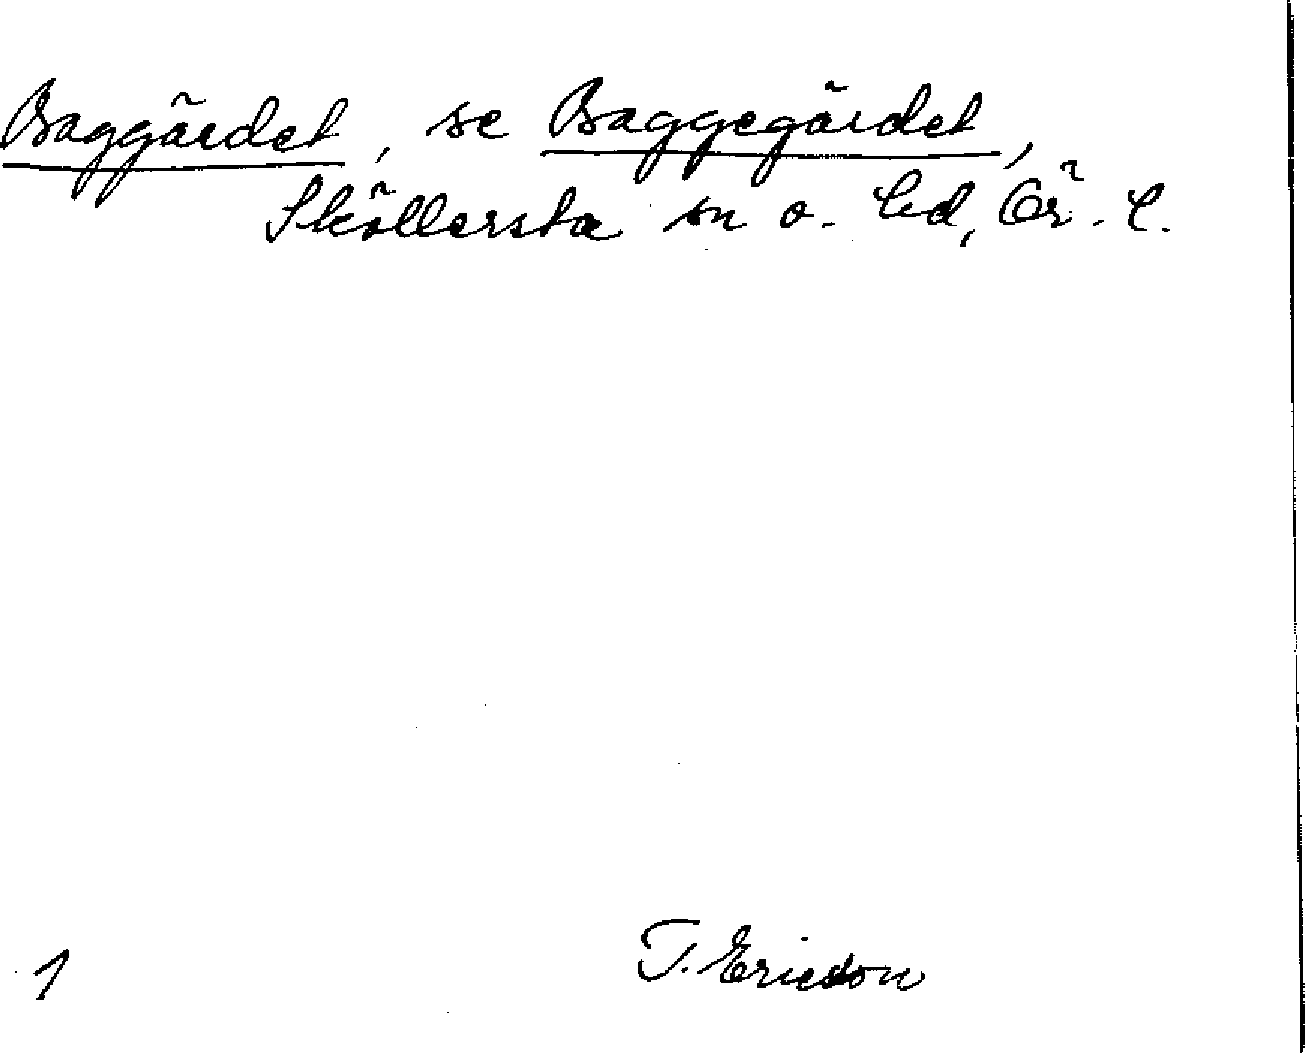 Baggärdet, se Baggegärdet,
Sköllersta sn o. hd, Ör. l.
1
T. Ericson